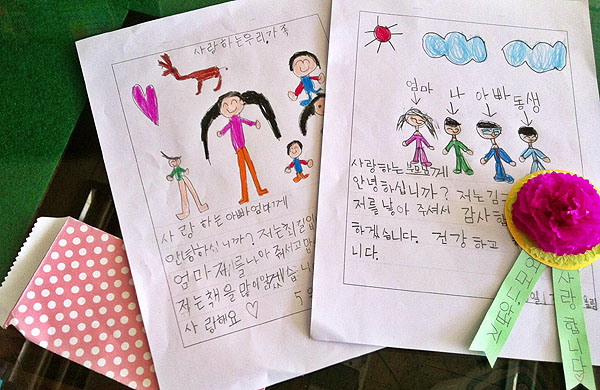 사랑하는우리가족
사랑하는아빠엄마께
안녕하십니까? 저는최길입
엄마 저를나아 줘서고맙
저는책을많이읽겠습니
사랑해요 ♡
엄마 나 아빠 동생
사랑하는 부모님께
안녕하십니까? 저는김
저를낳아 주셔서 감사
하겠습니다. 건강하고
니다.
사랑합니다